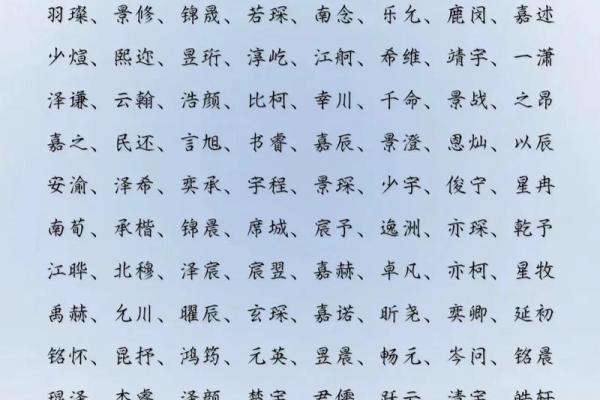 羽璨、景修、锦晟、若琛、南念、乐允、鹿闵、嘉述
少煊、熙迩、昱珩、淳屹、江舸、希维、靖宇、一潇
泽谦、云翰、浩颜、比柯、幸川、千命、景战、之昂
嘉之、民还、言旭、书睿、嘉辰、景澄、恩灿、以辰
安渝、泽希、奕承、宇程、景琛、少宇、俊宁、星冉
南荀、承楷、锦晨、席城、宸予、逸洲、亦琛、乾予
江晔、北穆、泽宸、宸翌、嘉赫、卓凡、亦柯、星牧
禹赫、允川、曜辰、玄琛、嘉诺、昕尧、奕卿、延初
铭怀、昆抒、鸿筠、元英、昱晨、畅元、岑问、铭晨